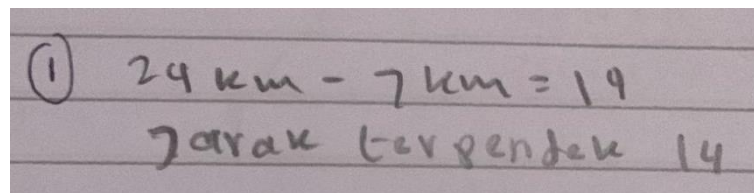 ① 24 km - 7 km = 19
Jarak terpendek 14